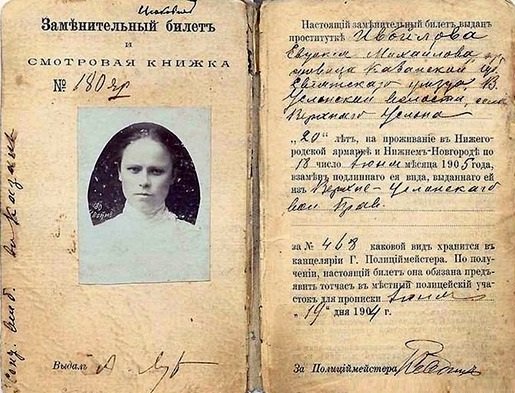 Замѣнительный билетъ
и
СМОТРОВАЯ КНИЖКА
№ 180 яр
Выдалъ
Настоящій замѣнительный билетъ выданъ
проституткѣ Ивойлова
Михайлова
Казанской
уѣзда, В.
Услонской волости, села
Верхняго Услона
„20“ лѣтъ, на проживаніе въ Нижего-
родской ярмаркѣ и Нижнемъ-Новгородѣ по
18 число Іюня мѣсяца 1905 года,
взамѣнъ подлиннаго ея вида, выданнаго ей
изъ Верхне-Услонскаго
вол Прав.
за № 463 каковой видъ хранится въ
канцеляріи Г. Полиціймейстера. По по-
лученіи, настоящій билетъ она обязана предъ-
явить тотчасъ въ мѣстный полицейскій уча-
стокъ для прописки Іюня
„19“ дня 1904 г.
За Полиціймейстера